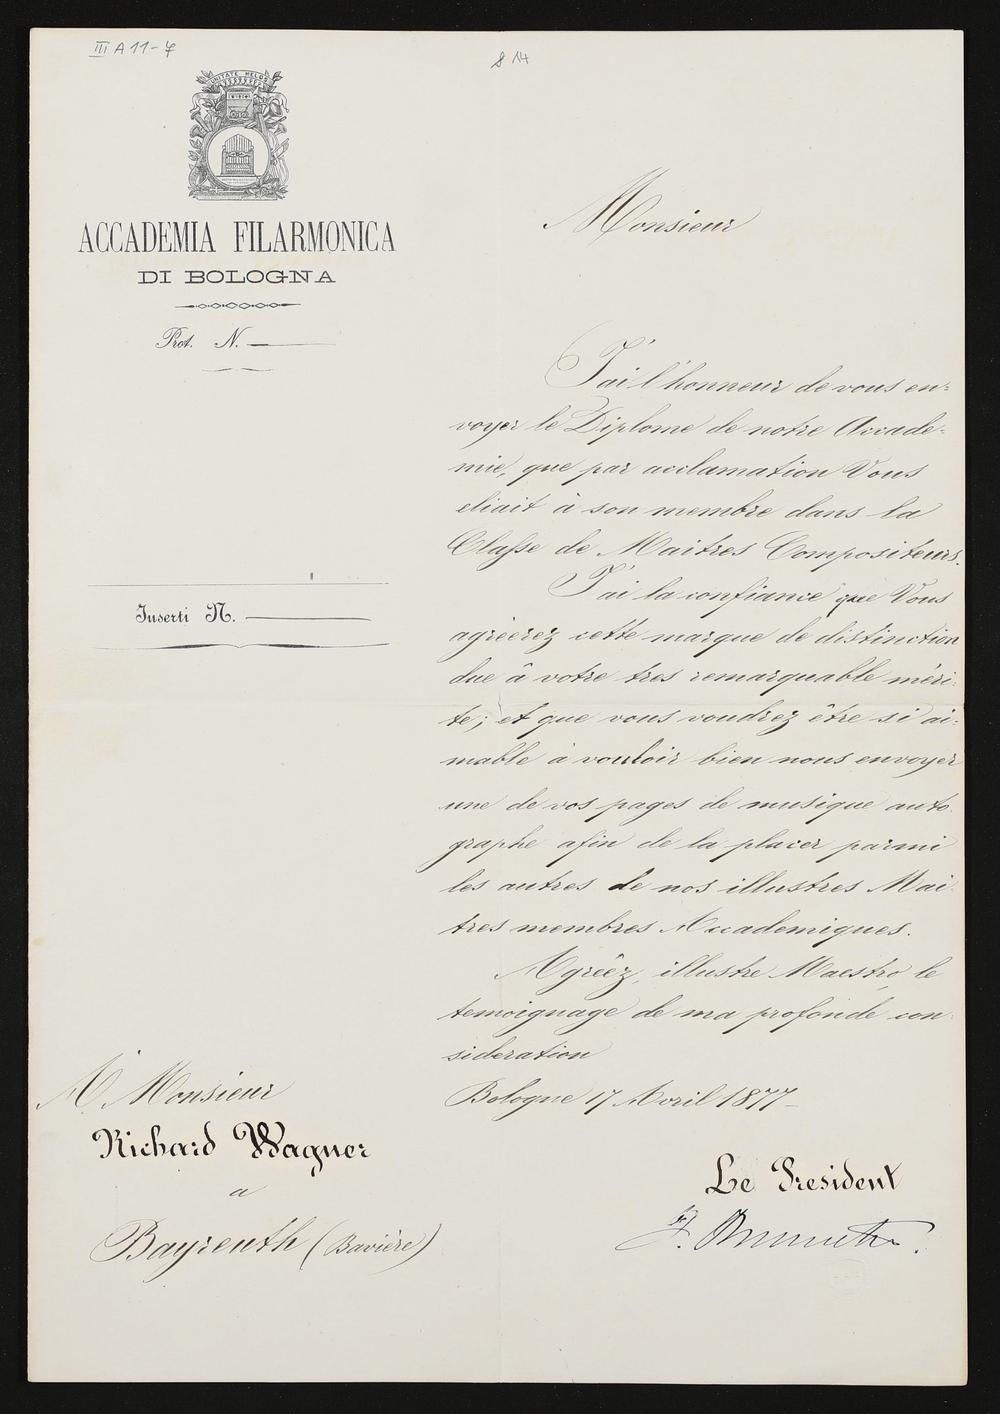 III A 11-7
8 14
UNITATE MELOS
ACCADEMIA FILARMONICA
DI BOLOGNA
Prot. N.
Inserti N.
Monsieur
J'ai l'honneur de vous en-
voyer le Diplome de notre Accade-
mie, que par acclamation Vous
eliait à son membre dans la
Classe de Maitres Compositeurs.
J'ai la confiance que Vous
agréerez cette marque de distinction
due à votre tres remarquable méri-
te; et que vous voudrez être si ai-
mable à vouloir bien nous envoyer
une de vos pages de musique auto
graphe afin de la placer parmi
les autres de nos illustres Mai-
tres membres Accademiques.
Agréez, illustre Maestro, le
temoignage de ma profonde con-
sideration
Bologne 17 Avril 1877-
A Monsieur
Richard Wagner
a
Bayreuth (Bavière)
Le President